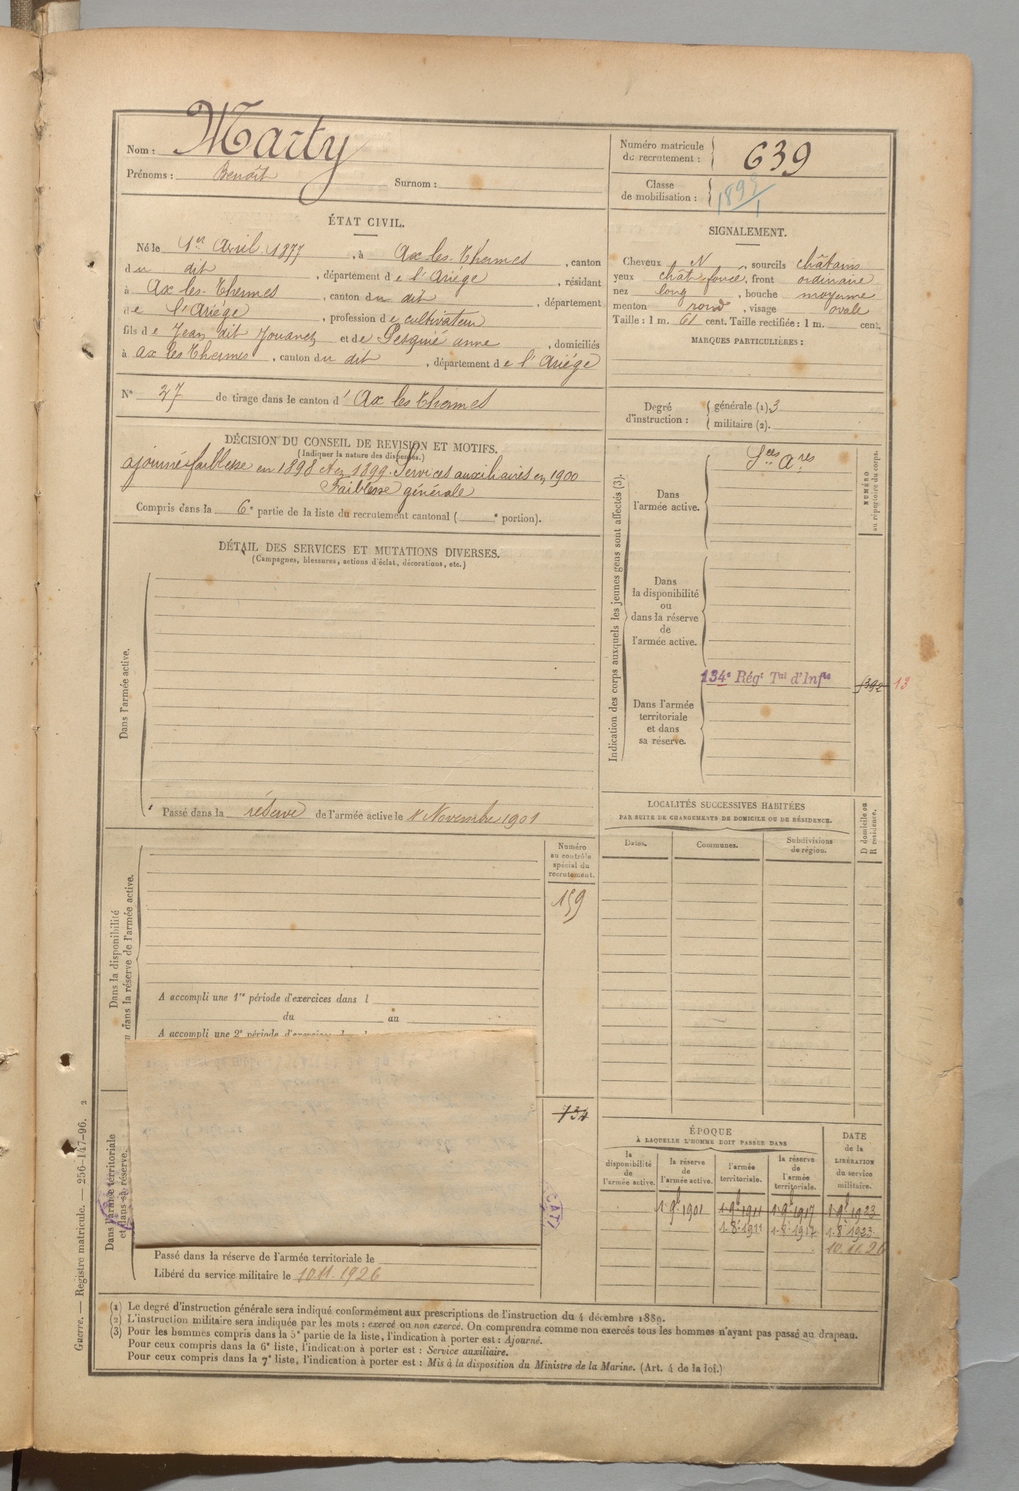 Nom : Marty
Prénoms : Benoît Surnom :
Numéro matricule du recrutement : 639
Classe de mobilisation :
ÉTAT CIVIL.
Né le 1er Avril 1877, à Ax-les-Thermes, canton
du dit, département de l'Ariége, résidant
à Ax les-Thermes, canton du dit, département
de l'Ariége, profession de cultivateur
fils de Jean dit Jouanez et de Pesquié Anne, domiciliés
à Ax les Thermes, canton du dit, département de l'Ariége
N° 27 de tirage dans le canton d'Ax les Thermes
SIGNALEMENT.
Cheveux N, sourcils châtains
yeux chât foncé, front ordinaire
nez long, bouche moyenne
menton rond, visage ovale
Taille : 1 m. 61 cent. Taille rectifiée : 1 m. cent.
MARQUES PARTICULIÈRES :
Degré d'instruction : générale (1) 3
militaire (2).
DÉCISION DU CONSEIL DE REVISION ET MOTIFS.
(Indiquer la nature des dispenses.)
ajourné faiblesse en 1898 et en 1899. Services auxiliaires en 1900
Faiblesse générale
Compris dans la 6e partie de la liste du recrutement cantonal ( e portion).
DÉTAIL DES SERVICES ET MUTATIONS DIVERSES.
(Campagnes, blessures, actions d'éclat, décorations, etc.)
Dans l'armée active.
Passé dans la réserve de l'armée active le 1er Novembre 1901
Indication des corps auxquels les jeunes gens sont affectés (3).
NUMÉRO au répertoire du corps.
Dans l'armée active.
Sces Ares
Dans la disponibilité ou dans la réserve de l'armée active.
134e Régt Tal d'Infie
13
Dans l'armée territoriale et dans sa réserve.
LOCALITÉS SUCCESSIVES HABITÉES
PAR SUITE DE CHANGEMENTS DE DOMICILE OU DE RÉSIDENCE.
Dates. Communes. Subdivisions de région. D domicile ou R résidence.
Dans la disponibilité ou dans la réserve de l'armée active.
Numéro au contrôle spécial du recrutement.
159
A accompli une 1re période d'exercices dans l
du au
A accompli une 2e période d'exercices
734
Dans l'armée territoriale et dans sa réserve.
Passé dans la réserve de l'armée territoriale le
Libéré du service militaire le 10.11.1926
ÉPOQUE
À LAQUELLE L'HOMME DOIT PASSER DANS
la disponibilité de l'armée active. la réserve de l'armée active. l'armée territoriale. la réserve de l'armée territoriale. DATE de la LIBÉRATION du service militaire.
1. 9bre 1901 1. 9bre 1911 1. 9bre 1917 1. 9bre 1923
1. 8bre 1911 1. 8bre 1917 1. 8bre 1923
10.11.26
(1) Le degré d'instruction générale sera indiqué conformément aux prescriptions de l'instruction du 4 décembre 1889.
(2) L'instruction militaire sera indiquée par les mots : exercé ou non exercé. On comprendra comme non exercés tous les hommes n'ayant pas passé au drapeau.
(3) Pour les hommes compris dans la 5e partie de la liste, l'indication à porter est : Ajourné.
Pour ceux compris dans la 6e liste, l'indication à porter est : Service auxiliaire.
Pour ceux compris dans la 7e liste, l'indication à porter est : Mis à la disposition du Ministre de la Marine. (Art. 4 de la loi.)
Guerre. — Registre matricule. — 256-147-96. 2